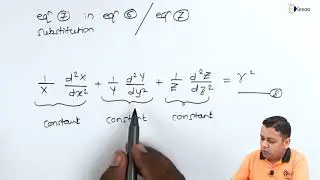 eqn ⑦ in eqn ⑥ / eqn ②
substitution
1/X d²X/dx² + 1/Y d²Y/dy² + 1/Z d²Z/dz² = γ² — ⑧
constant constant constant
Ekeeda